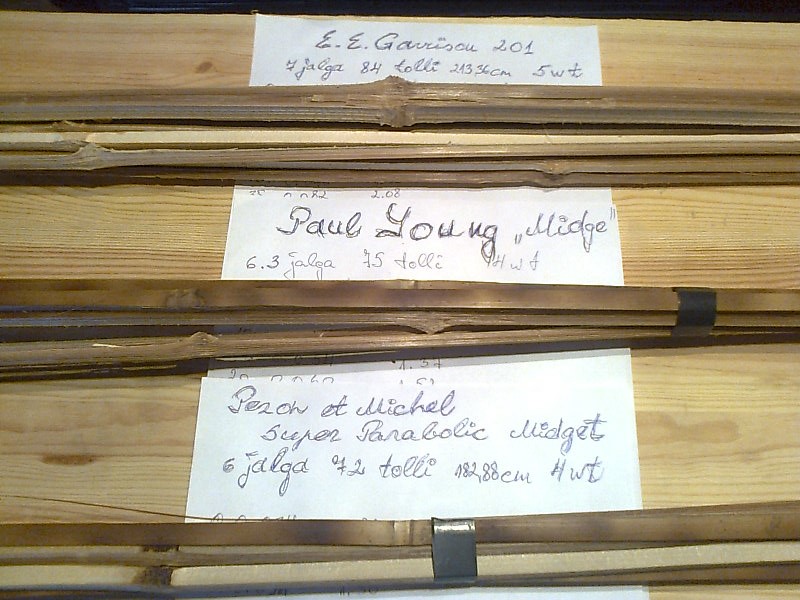 E. E. Garrison 201
7 jalga 84 tolli 213,36cm 5wt
2.08
Paul Young „Midge"
6.3 jalga 75 tolli 4wt
1.37
Pezon et Michel
Super Parabolic Midget
6 jalga 72 tolli 182,88cm 4wt